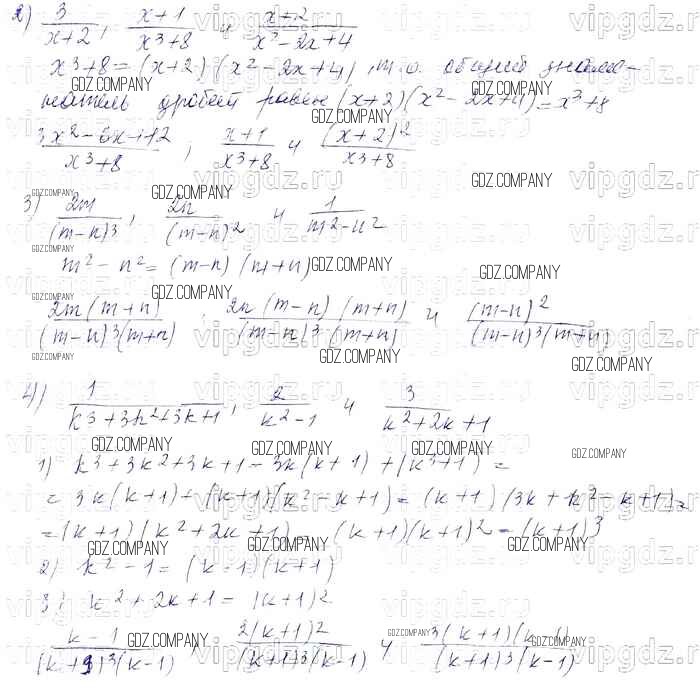 2) 3/(x+2), (x+1)/(x³+8) и (x+2)/(x²-2x+4)
x³+8=(x+2)(x²-2x+4), т.о. общий знаме-
натель дробей равен (x+2)(x²-2x+4)=x³+8
(3x²-6x+12)/(x³+8), (x+1)/(x³+8) и (x+2)²/(x³+8)
3) 2m/(m-n)³, 2n/(m-n)² и 1/(m²-n²)
m²-n²=(m-n)(m+n)
2m(m+n)/((m-n)³(m+n)), 2n(m-n)(m+n)/((m-n)³(m+n)) и (m-n)²/((m-n)³(m+n))
4) 1/(k³+3k²+3k+1), 2/(k²-1) и 3/(k²+2k+1)
1) k³+3k²+3k+1=3k(k+1)+(k³+1)=
=3k(k+1)+(k+1)(k²-k+1)=(k+1)(3k+k²-k+1)=
=(k+1)(k²+2k+1)=(k+1)(k+1)²=(k+1)³
2) k²-1=(k-1)(k+1)
3) k²+2k+1=(k+1)²
(k-1)/((k+1)³(k-1)), 2(k+1)²/((k+1)³(k-1)) и 3(k+1)(k-1)/((k+1)³(k-1))
GDZ.COMPANY
vipgdz.ru